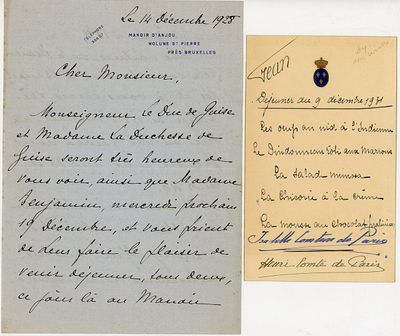 Le 14 Décembre 1928
TÉLÉPHONE
MANOIR D'ANJOU,
WOLUWE ST PIERRE
PRÈS BRUXELLES
Cher Monsieur,
Monseigneur le Duc de Guise
et Madame la Duchesse de
Guise seront très heureux de
vous voir, ainsi que Madame
Benjamin, mercredi prochain
19 décembre, et vous prient
de leur faire le plaisir de
venir déjeuner, tous deux,
ce jour là au Manoir
Jean
Déjeuner du 9 décembre 1971
Les oeufs au nid à l'Indienne
Le Dindonneau rôti aux Marrons
La Salad mimosa
La Chicorée à la Crème
La mousse au chocolat pralinée
Isabelle Comtesse de Paris
Henri Comte de Paris